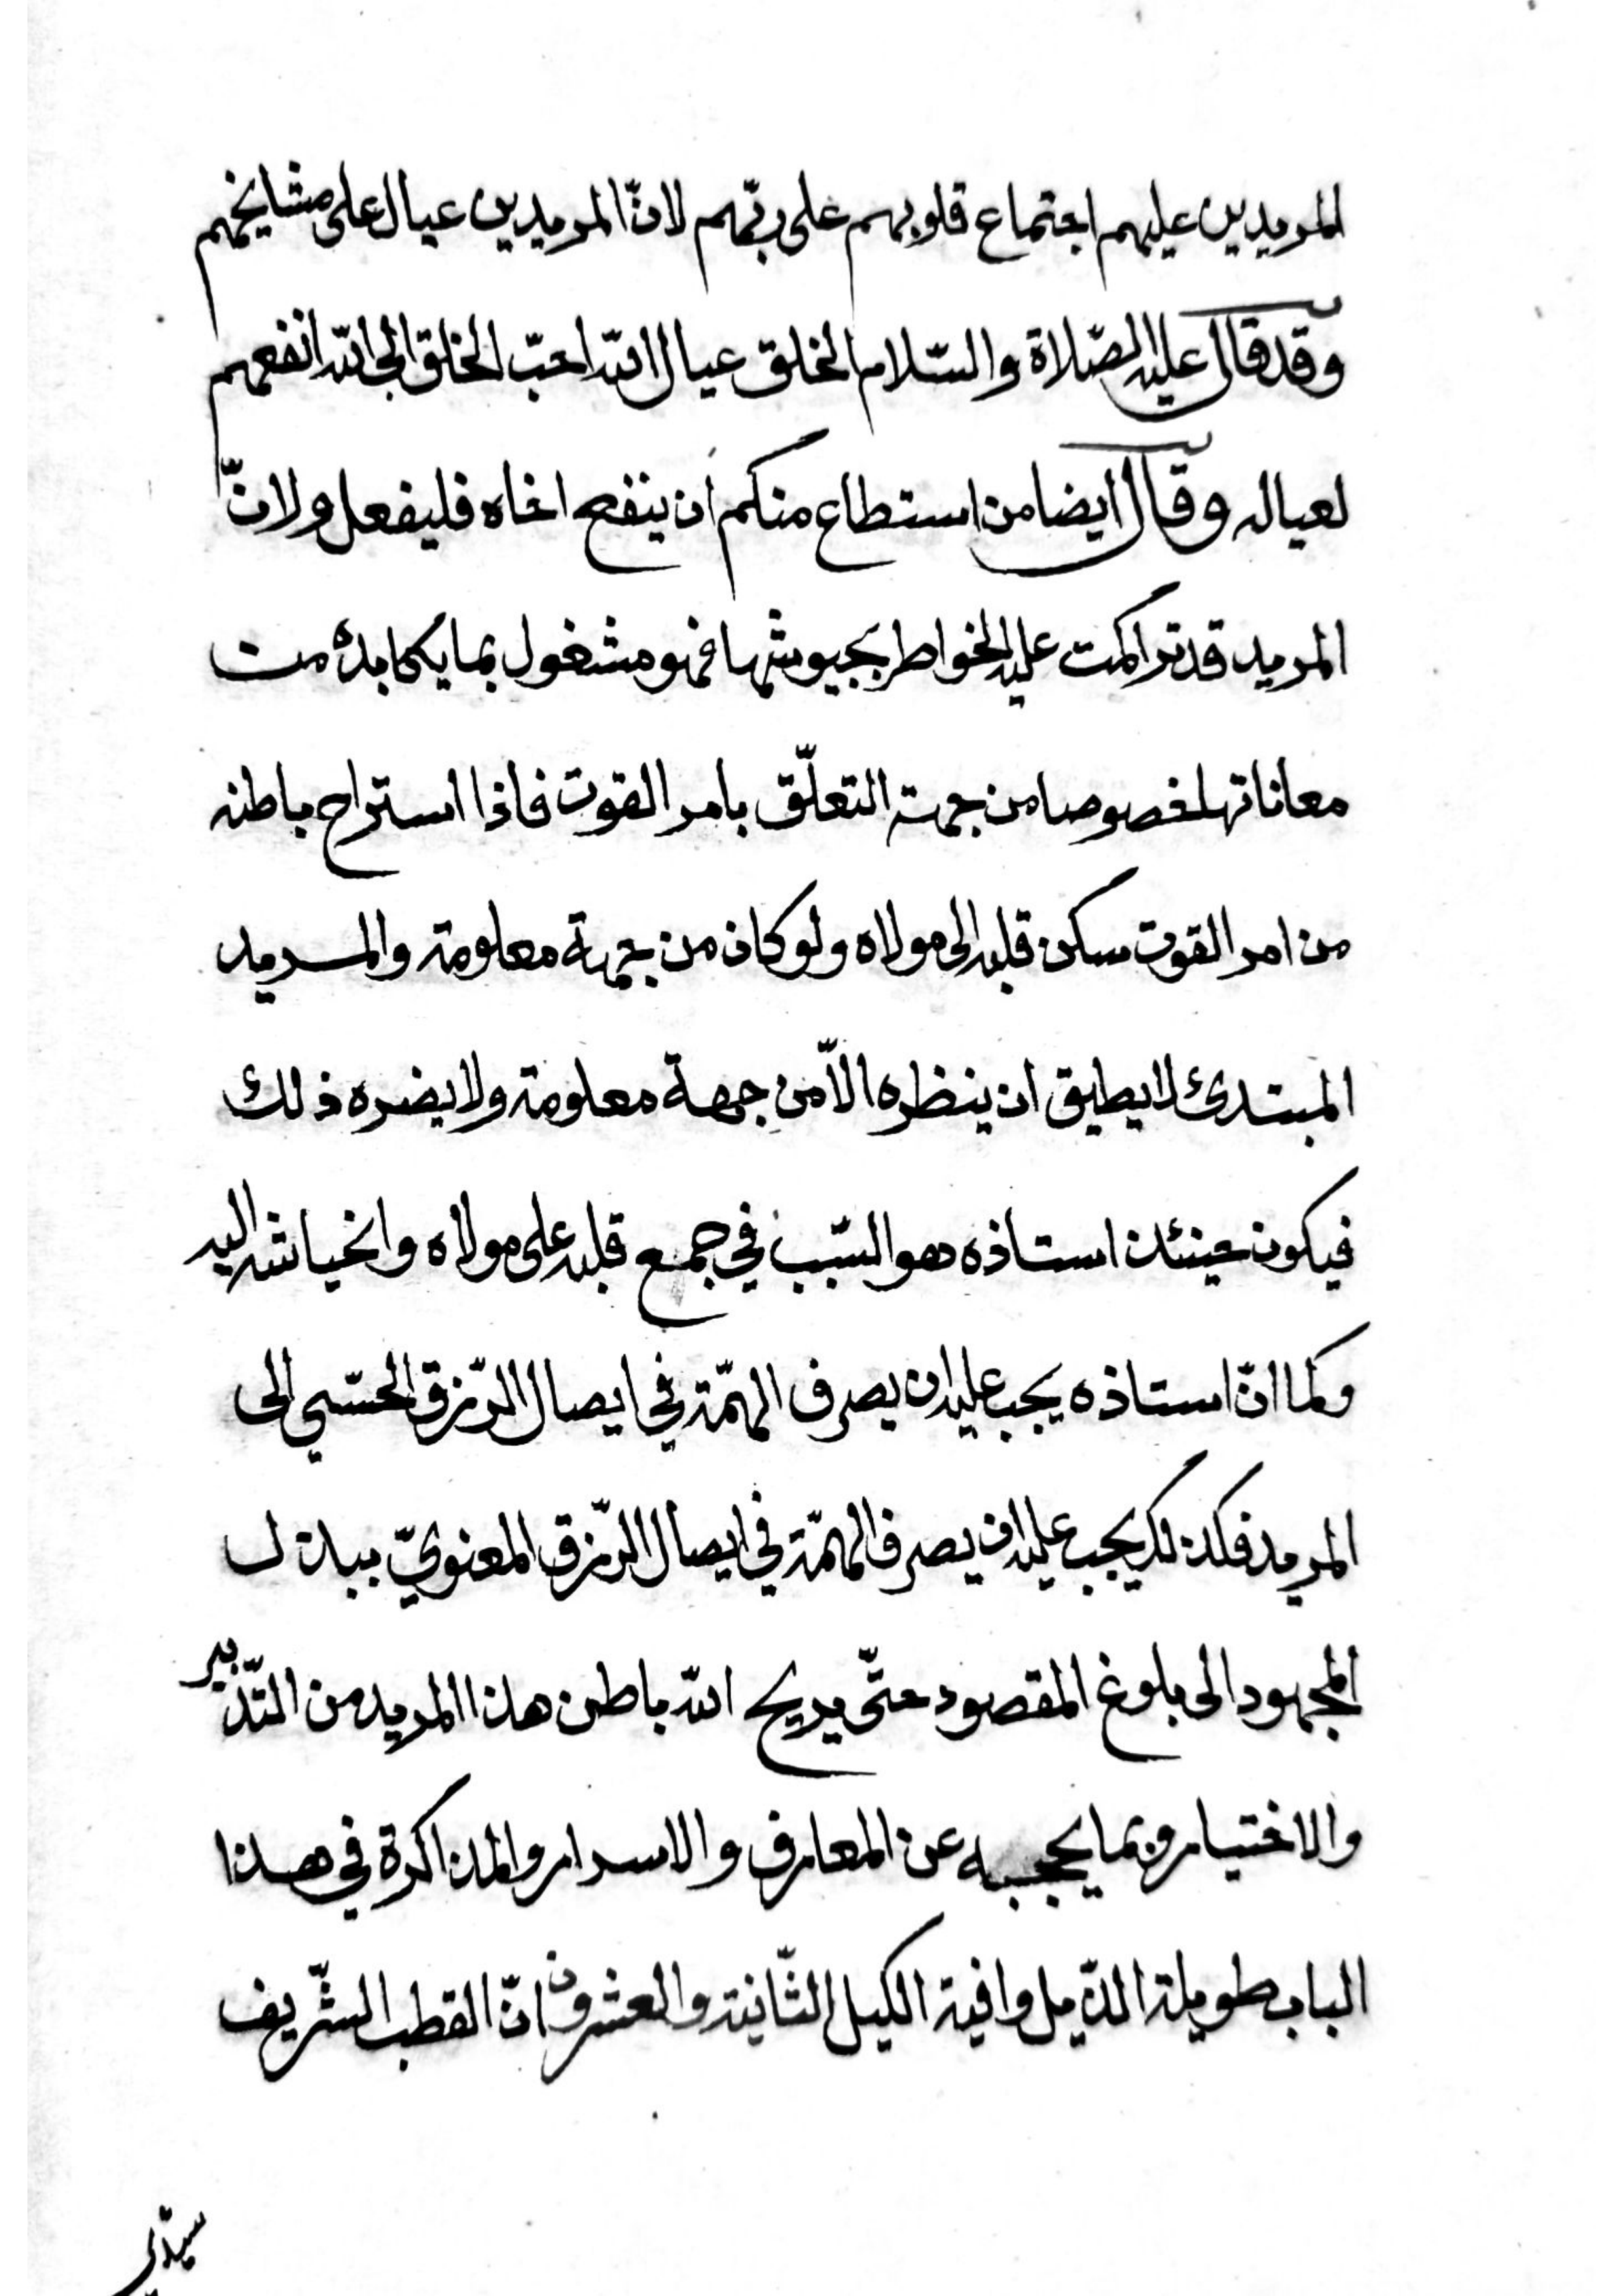 المريدين عليهم اجتماع قلوبهم على ربّهم لانّ المريدين عيال على مشايخهم
وقد قال عليه الصّلاة والسّلام الخلق عيال الله احبّ الخلق الى الله انفعهم
لعياله وقال ايضا من استطاع منكم ان ينفع اخاه فليفعل ولانّ
المريد قد تراكمت عليه الخواطر بجيوشها فهو مشغول بما يكابده من
معاناتها خصوصا من جهة التعلّق بامر القوت فاذا استراح باطنه
من امر القوت سكن قلبه الى مولاه ولو كان من جهة معلومة والمريد
المبتدئ لا يطيق ان ينظره الّا من جهة معلومة ولا يضره ذلك
فيكون حينئذ استاذه هو السّبب في جمع قلبه على مولاه وانحياشه اليه
وكما انّ استاذه يجب عليه ان يصرف الهمّة في ايصال الرّزق الحسّي الى
المريد فكذلك يجب عليه ان يصرف الهمّة في ايصال الرّزق المعنويّ ببذل
المجهود الى بلوغ المقصود حتّى يريح الله باطن هذا المريد من التّدبير
والاختيار وبما يحجبه عن المعارف والاسرار والمذاكرة في هذا
الباب طويلة الذّيل وافية الكيل الثّانية والعشرون انّ القطب الشّريف
سيّدي